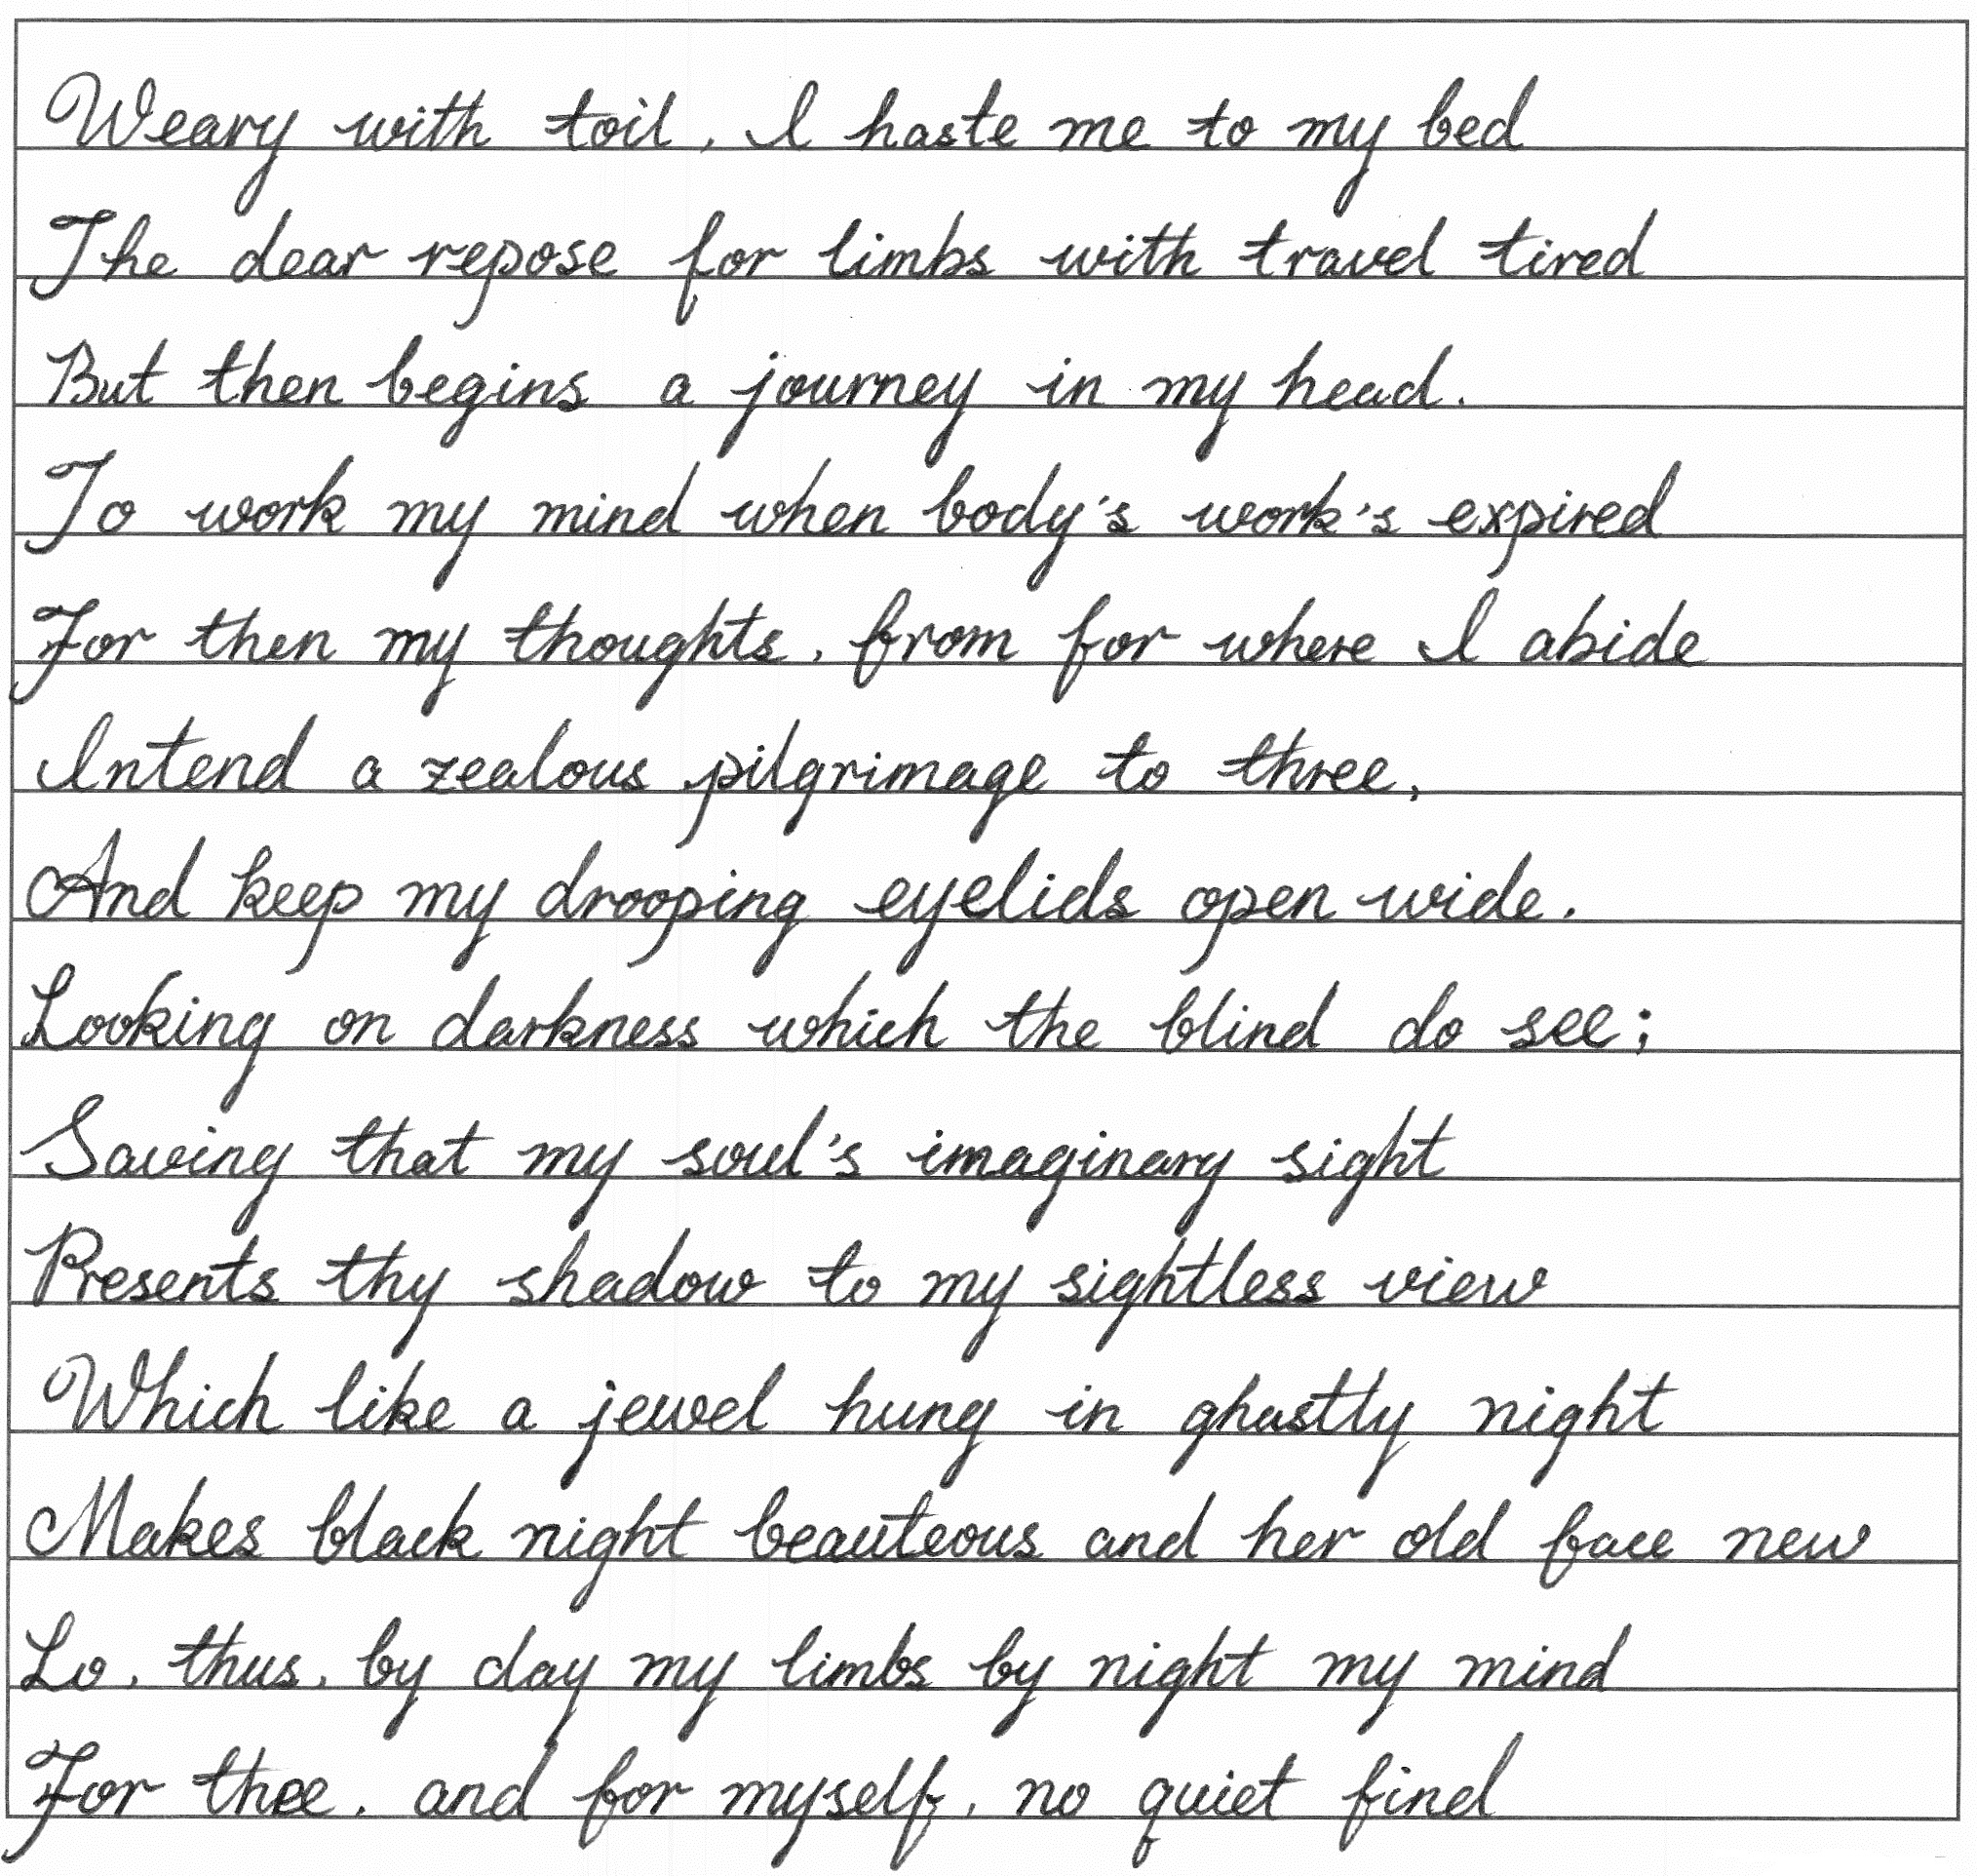 Weary with toil, I haste me to my bed
The dear repose for limbs with travel tired
But then begins a journey in my head.
To work my mind when body's work's expired
For then my thoughts, from for where I abide
Intend a zealous pilgrimage to three,
And keep my drooping eyelids open wide.
Looking on darkness which the blind do see;
Saving that my soul's imaginary sight
Presents thy shadow to my sightless view
Which like a jewel hung in ghastly night
Makes black night beauteous and her old face new
Lo, thus, by day my limbs by night my mind
For thee, and for myself, no quiet find